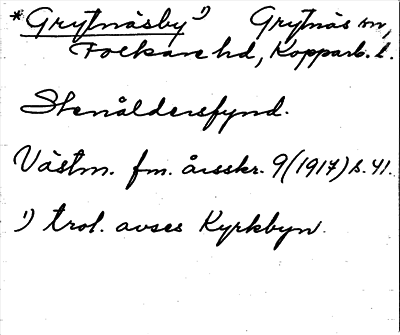 *Grytnäsby¹) Grytnäs sn,
Folkare hd, Kopparb. l.
Stenåldersfynd.
Västm. fm. årsskr. 9 (1917) s. 41.
¹) trol. avses Kyrkbyn.